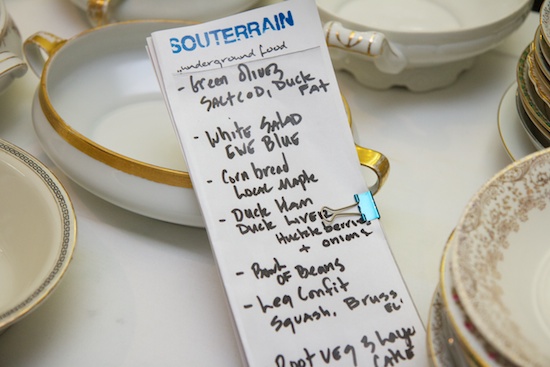 SOUTERRAIN
..underground food
- Green Olives
Salt Cod, Duck Fat
- White Salad
Ewe Blue
- Corn bread
Local Maple
- Duck Ham
Duck Liver
Huckleberries
+ onions
- Bowl of Beans
- Leg Confit
Squash, Bruss
Root Veg 3 Layer
CAKE